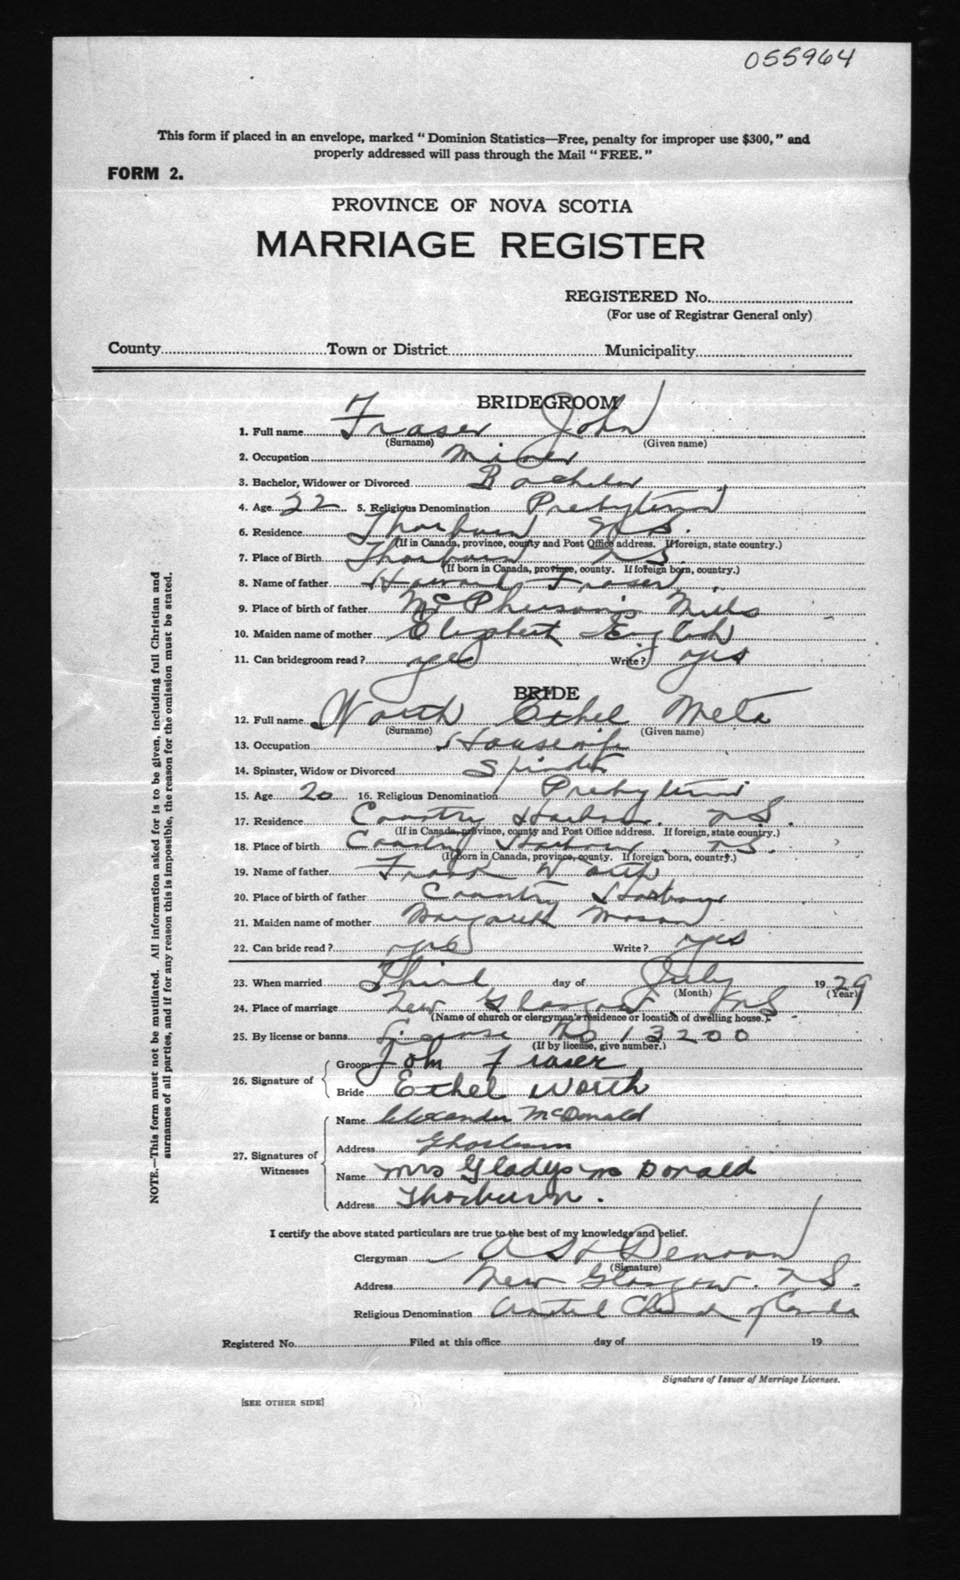 055964
This form if placed in an envelope, marked "Dominion Statistics—Free, penalty for improper use $300," and
properly addressed will pass through the Mail "FREE."
FORM 2.
PROVINCE OF NOVA SCOTIA
MARRIAGE REGISTER
REGISTERED No.
(For use of Registrar General only)
County Town or District Municipality
BRIDEGROOM
1. Full name Fraser John
(Surname) (Given name)
2. Occupation Miner
3. Bachelor, Widower or Divorced Bachelor
4. Age 22 5. Religious Denomination Presbyterian
6. Residence Thorburn N.S.
(If in Canada, province, county and Post Office address. If foreign, state country.)
7. Place of Birth Thorburn N.S.
(If born in Canada, province, county. If foreign born, country.)
8. Name of father Howard Fraser
9. Place of birth of father McPherson's Mills
10. Maiden name of mother Elizabeth English
11. Can bridegroom read? yes Write? yes
BRIDE
12. Full name Worth Ethel Meta
(Surname) (Given name)
13. Occupation Housewife
14. Spinster, Widow or Divorced Spinster
15. Age 20 16. Religious Denomination Presbyterian
17. Residence Country Harbour. N.S.
(If in Canada, province, county and Post Office address. If foreign, state country.)
18. Place of birth Country Harbour. N.S.
(If born in Canada, province, county. If foreign born, country.)
19. Name of father Frank Worth
20. Place of birth of father Country Harbour
21. Maiden name of mother Margaret Mason
22. Can bride read? yes Write? yes
23. When married Third day of July 1929
(Month) (Year)
24. Place of marriage New Glasgow N.S.
(Name of church or clergyman's residence or location of dwelling house.)
25. By license or banns License No 13200
(If by license, give number.)
26. Signature of
Groom John Fraser
Bride Ethel Worth
27. Signatures of Witnesses
Name Alexander McDonald
Address Thorburn
Name Mrs Gladys McDonald
Address Thorburn.
I certify the above stated particulars are true to the best of my knowledge and belief.
Clergyman
(Signature)
Address New Glasgow. N.S.
Religious Denomination United Church of Canada
Registered No. Filed at this office day of 19
Signature of Issuer of Marriage Licenses.
[SEE OTHER SIDE]
NOTE.—This form must not be mutilated. All information asked for is to be given, including full Christian and
surnames of all parties, and if for any reason this is impossible, the reason for the omission must be stated.